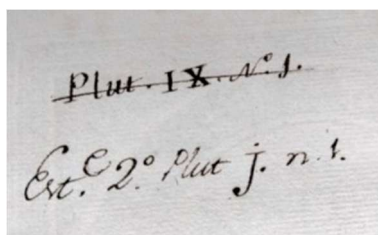 Plut. IX. Nº. 1.
Est.e 2º Plut j. n. 1.